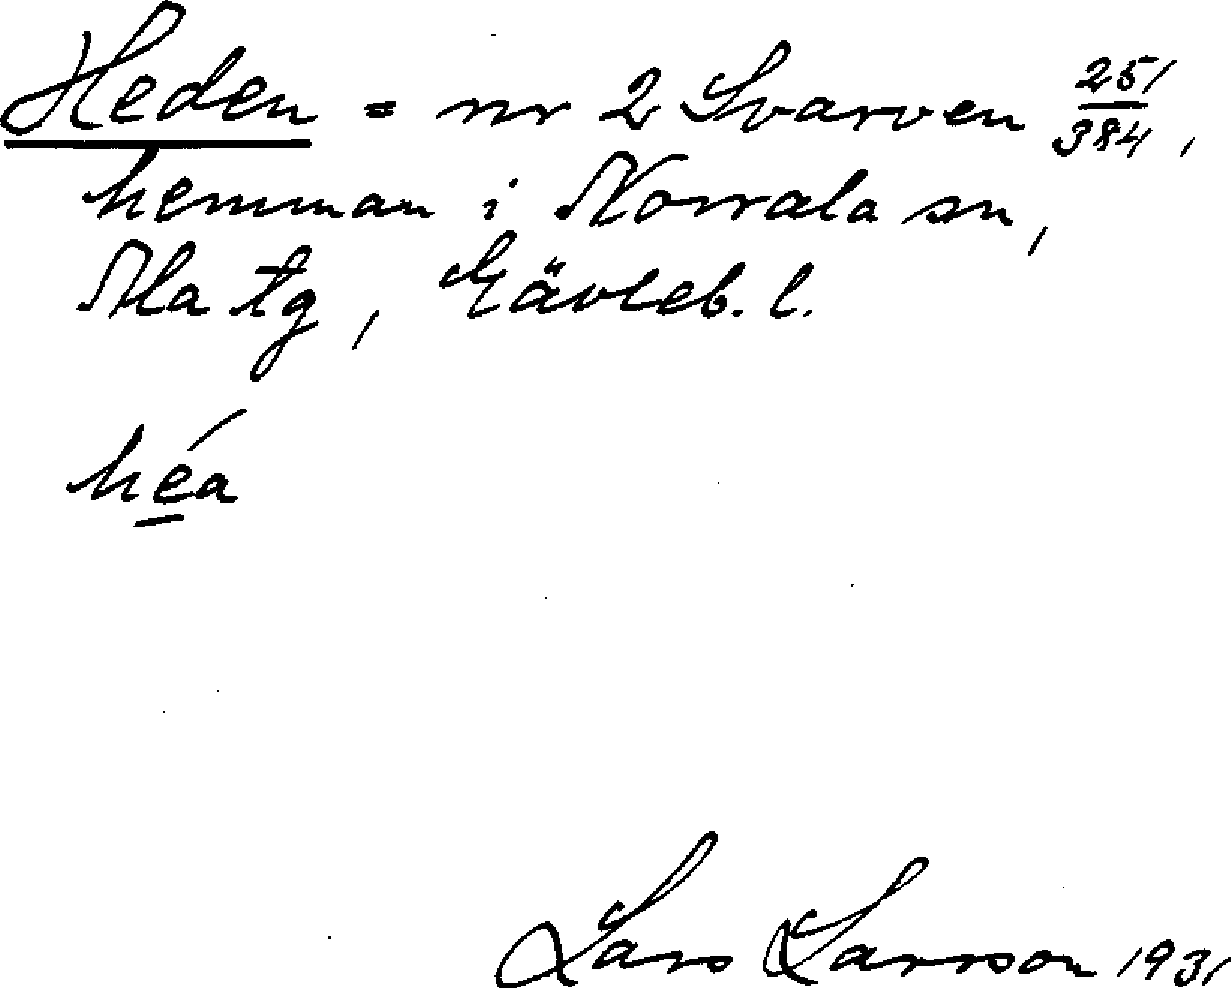 Heden = nr 2 Svarven 251/384,
hemman i Norrala sn,
Ala tg, Gävleb. l.
héa
Lars Larsson 1931